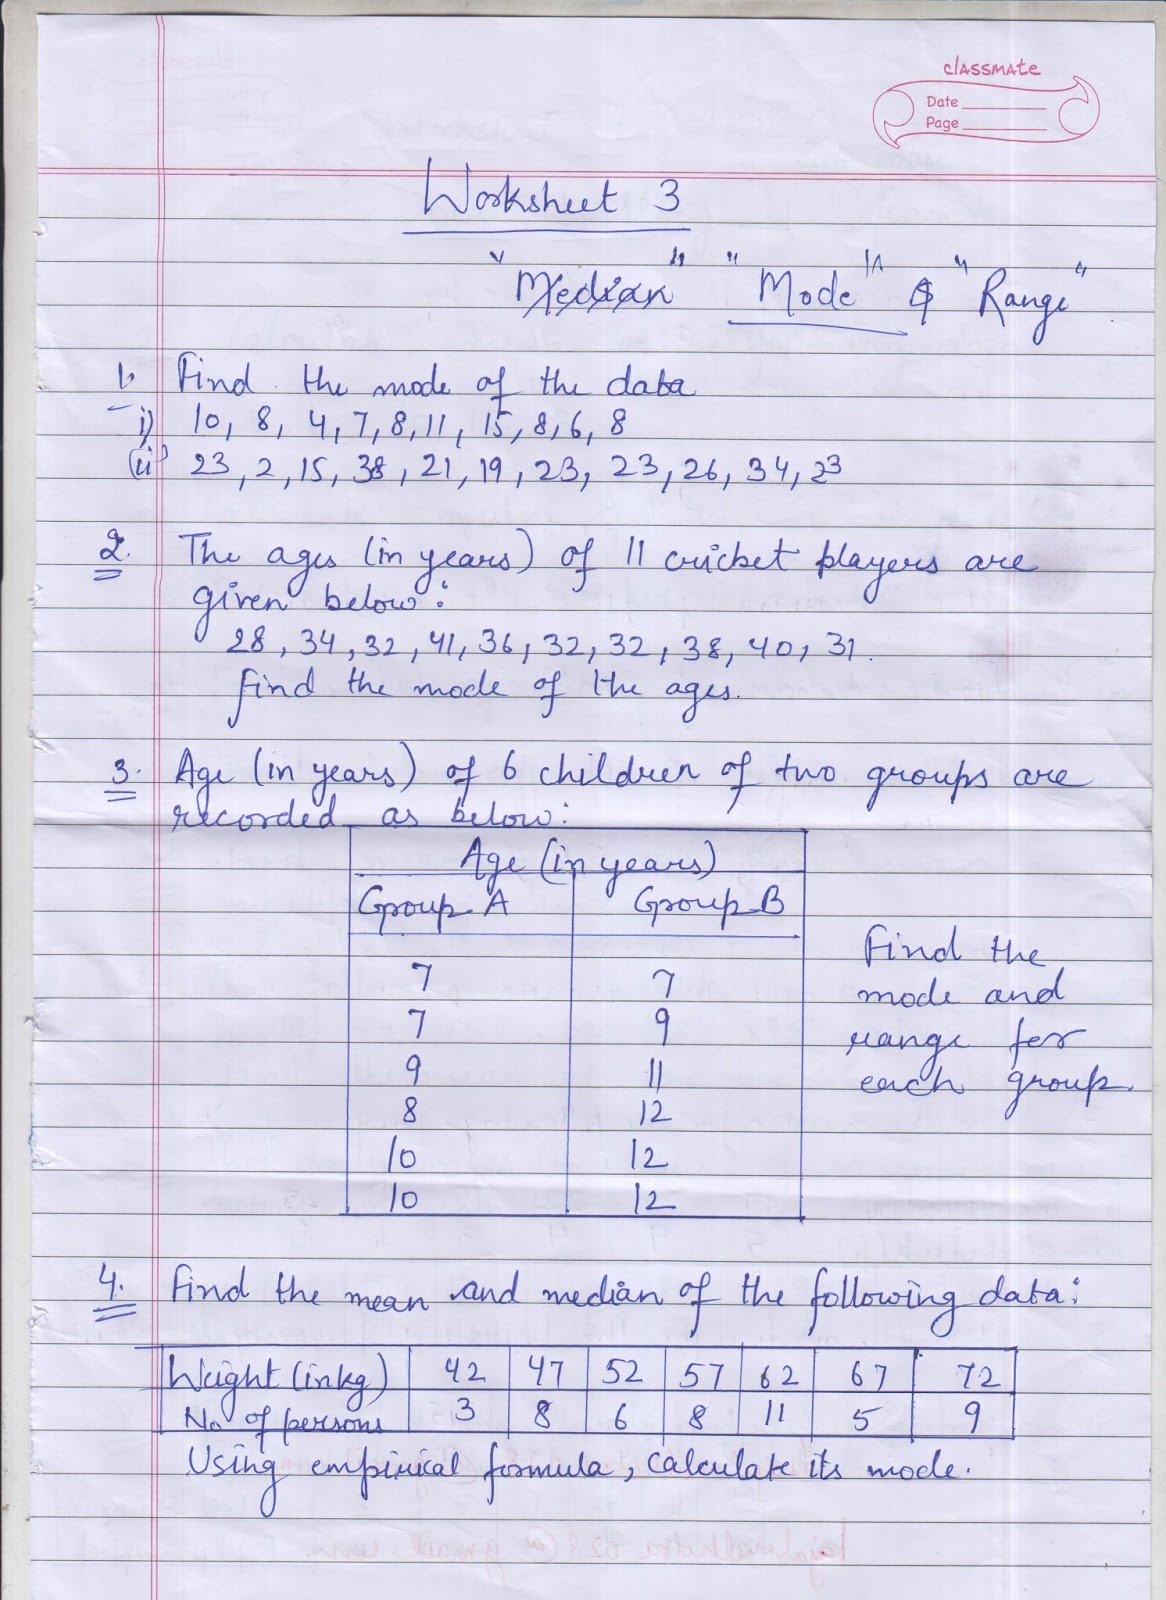 classmate
Date
Page
Worksheet 3
"Median" "Mode" & "Range"
1. Find the mode of the data
i) 10, 8, 4, 7, 8, 11, 15, 8, 6, 8
(ii) 23, 2, 15, 38, 21, 19, 23, 23, 26, 34, 23
2. The ages (in years) of 11 cricket players are
given below:
28, 34, 32, 41, 36, 32, 32, 38, 40, 31.
Find the mode of the ages.
3. Age (in years) of 6 children of two groups are
recorded as below:
Age (in years)
Group A Group B
7 7
7 9
9 11
8 12
10 12
10 12
Find the
mode and
range for
each group.
4. Find the mean and median of the following data:
Weight (in kg) 42 47 52 57 62 67 72
No of persons 3 8 6 8 11 5 9
Using empirical formula, calculate its mode.